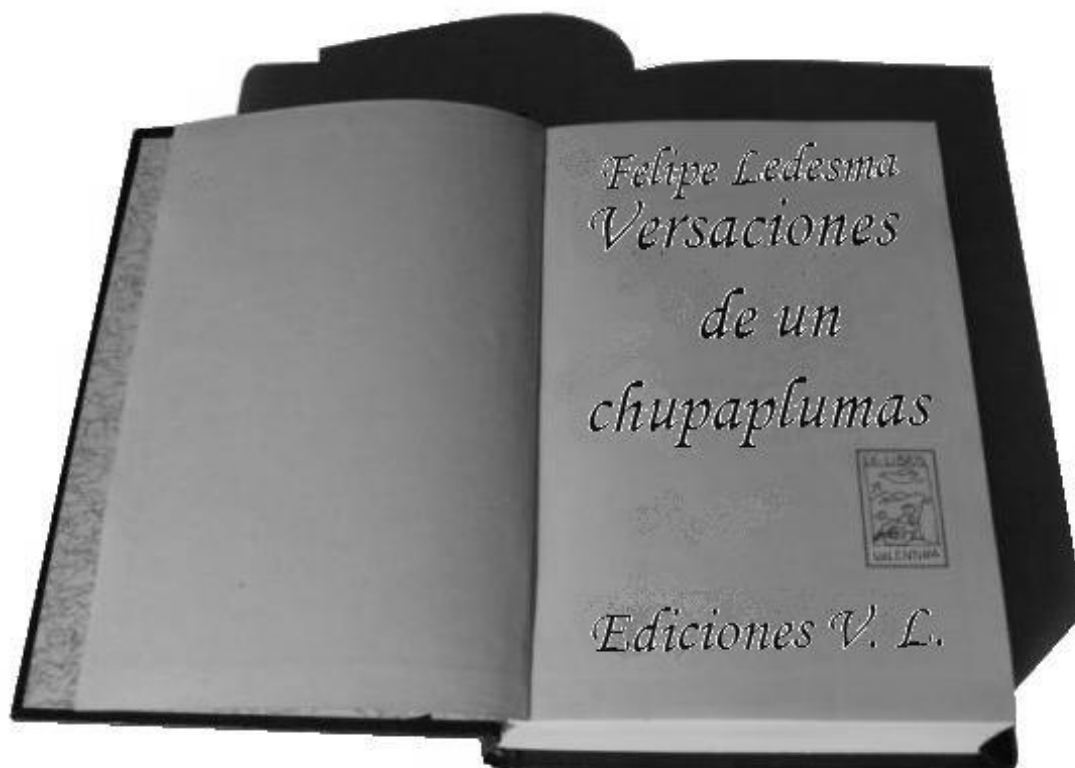 Felipe Ledesma
Versaciones
de un
chupaplumas
EX-LIBRIS
VALENTINA
Ediciones V. L.